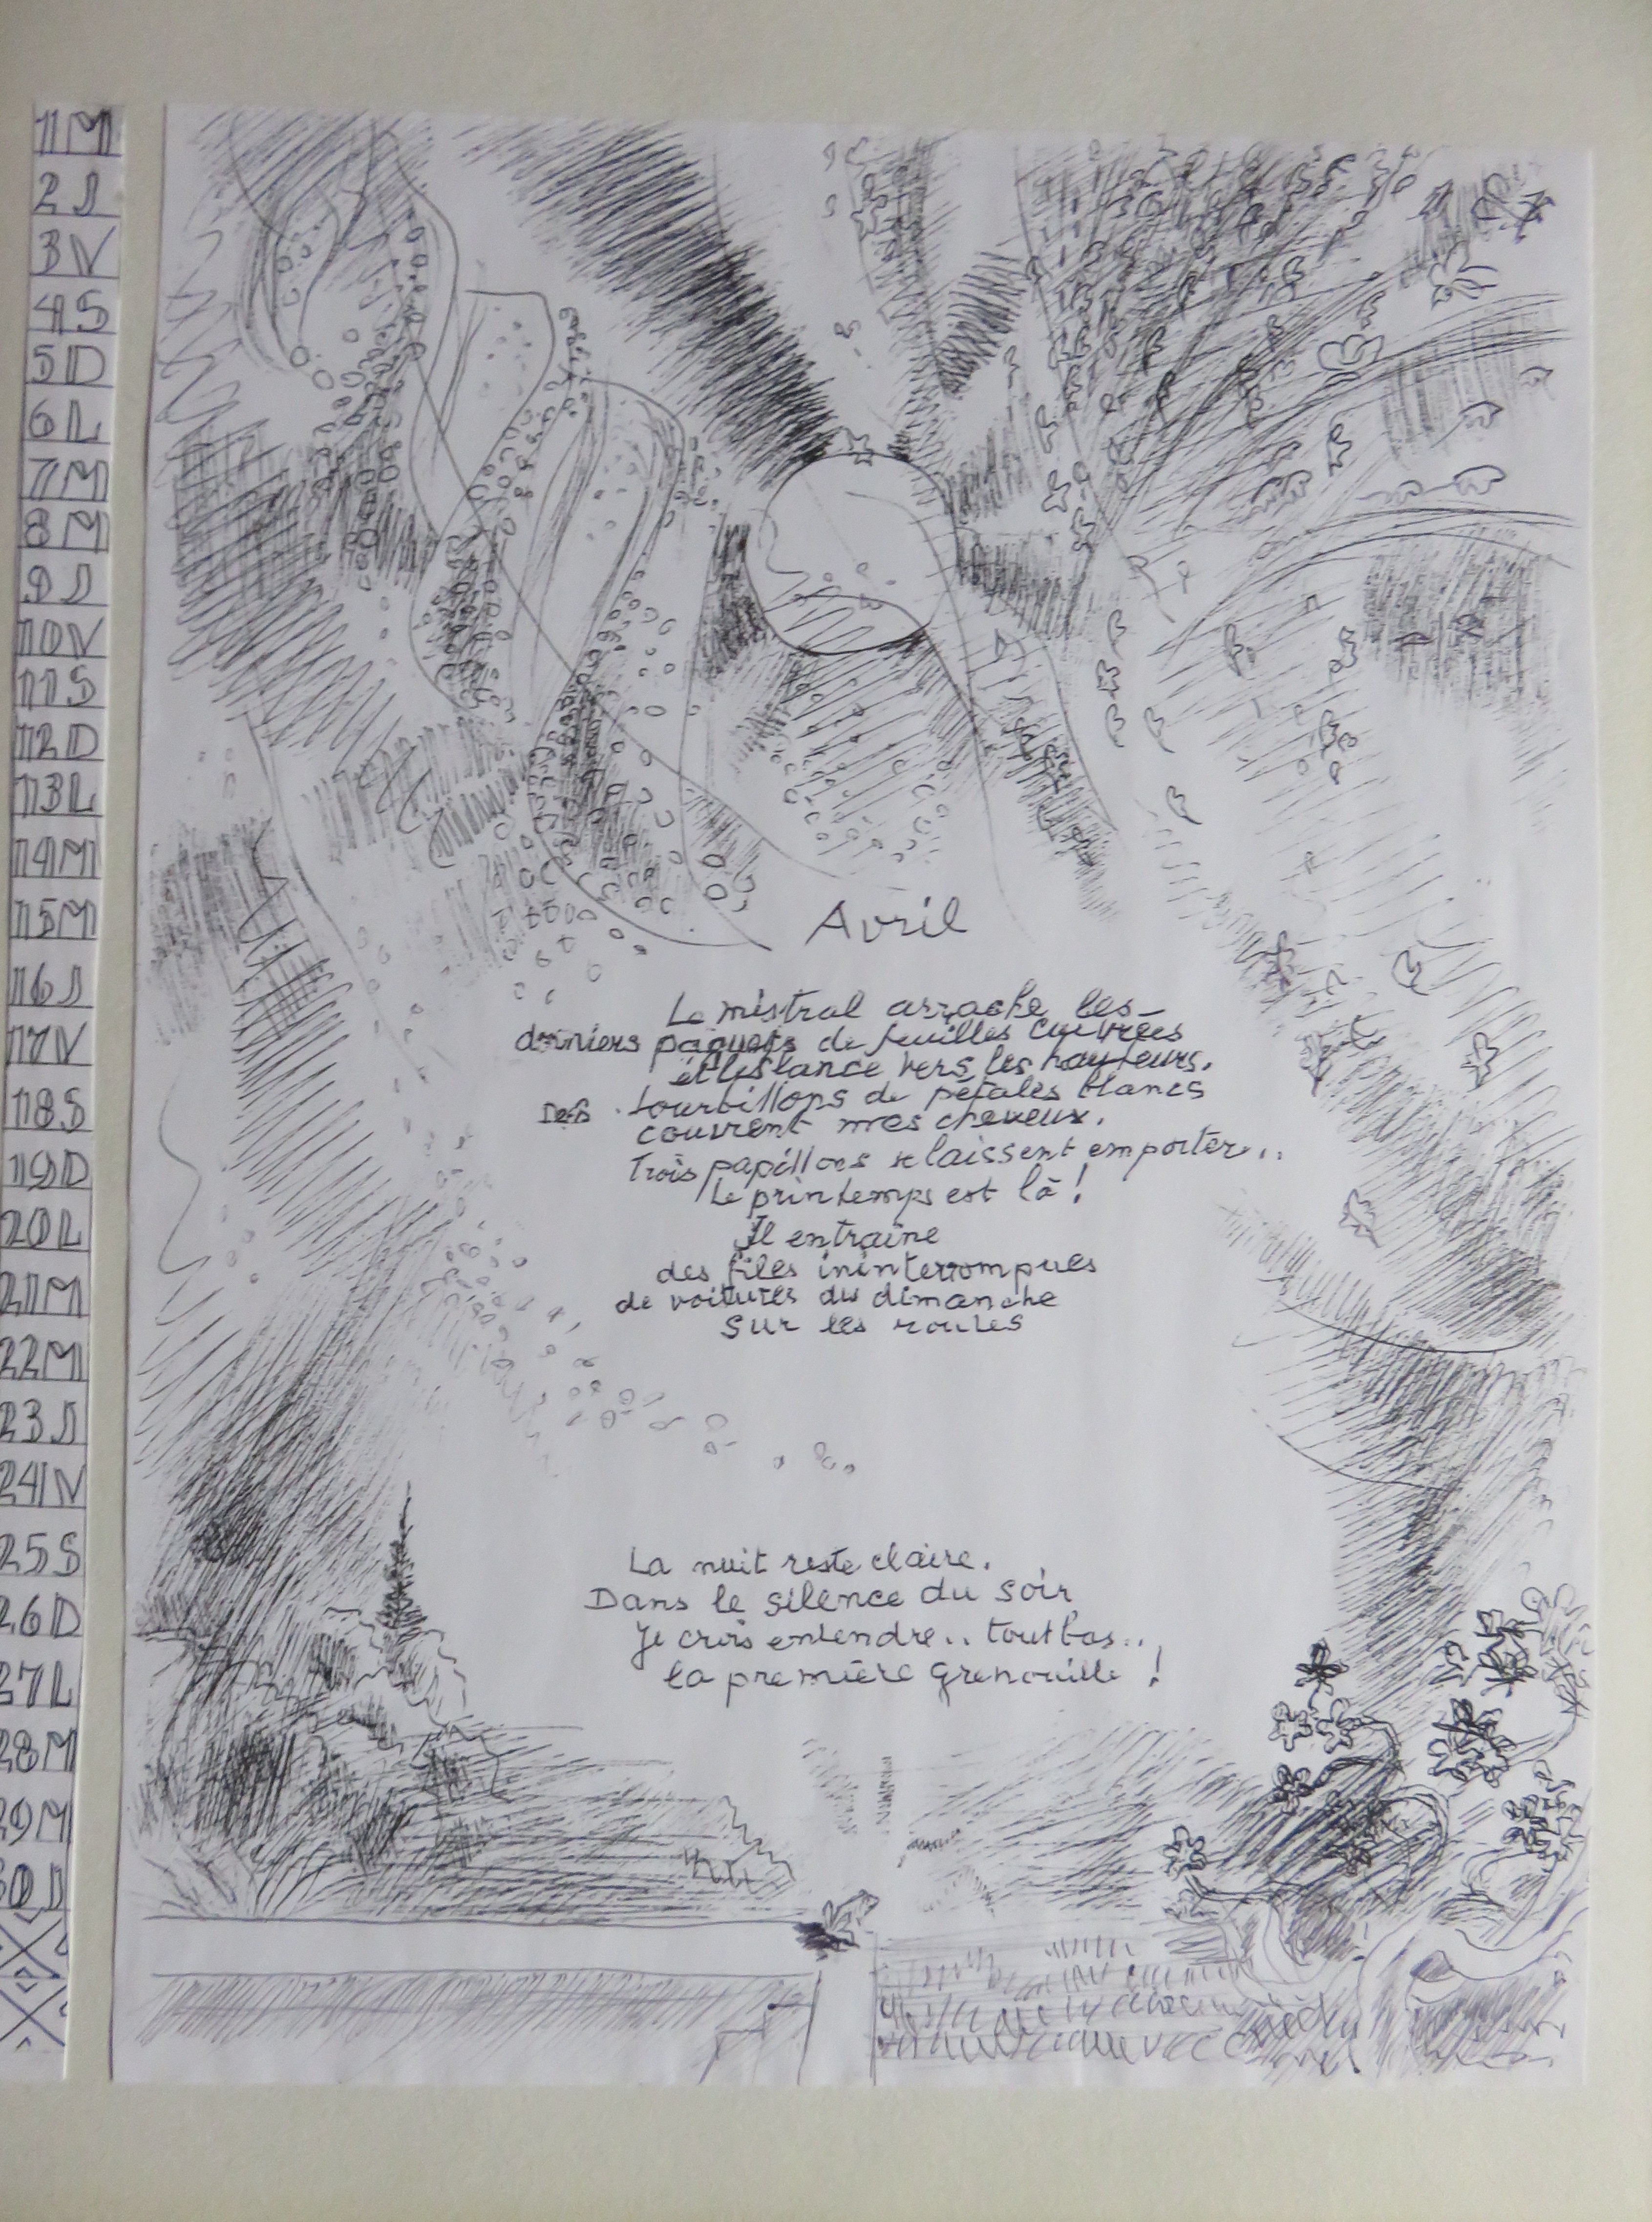 1 M
2 J
3 V
4 S
5 D
6 L
7 M
8 M
9 J
10 V
11 S
12 D
13 L
14 M
15 M
16 J
17 V
18 S
19 D
20 L
21 M
22 M
23 J
24 V
25 S
26 D
27 L
28 M
29 M
30 J
Avril
Le mistral arrache les
derniers paquets de feuilles cuivrées
et les lance vers les hauteurs.
Des tourbillons de pétales blancs
couvrent mes cheveux.
Trois papillons se laissent emporter..
Le printemps est là !
Il entraîne
des files ininterrompues
de voitures du dimanche
sur les routes
La nuit reste claire.
Dans le silence du soir
Je crois entendre.. tout bas..
la première grenouille !